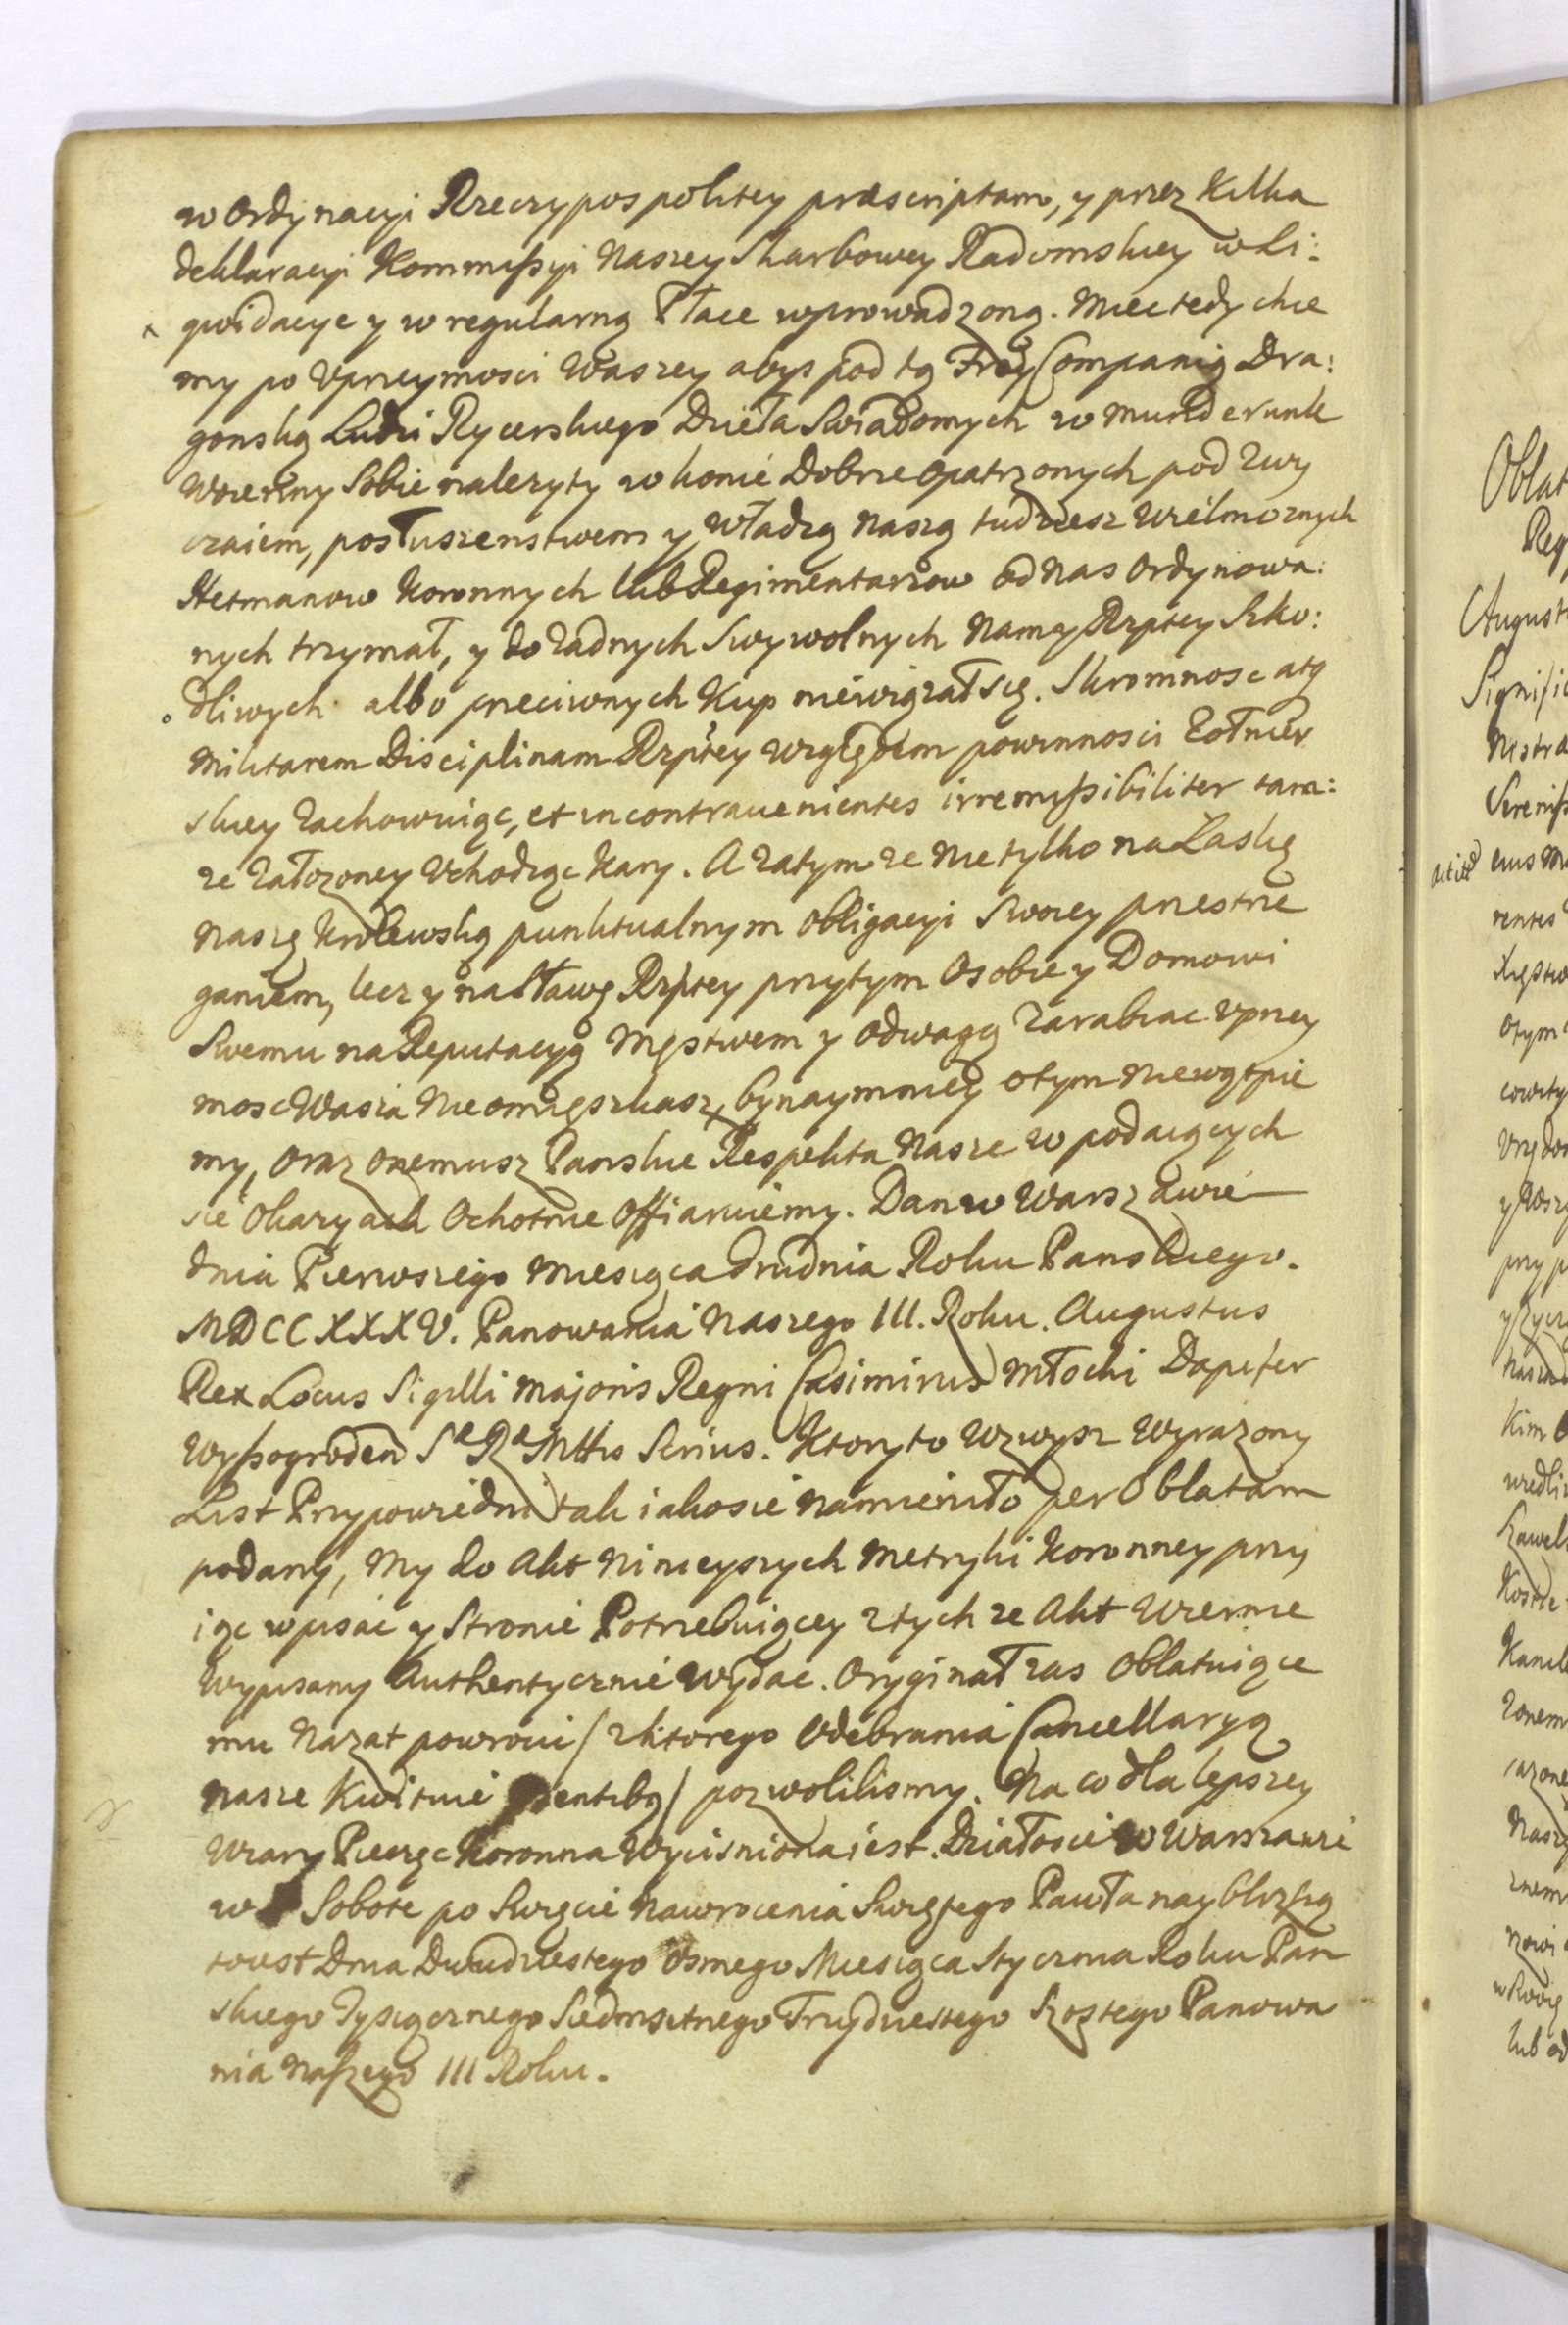 w Ordynacyi Rzeczypospolitey præscriptam, y przez Kilka
deklaracyi Kommissyi Naszey Skarbowey Radomskiey w Li:
qwidacye y w regularną Płace wprowadzoną. Miec tedy chce
my po Vprzeymosci Waszey abys pod tą Frey Companią Dra:
gonską Ludzi Rycerskiego Dzieła Swiadomych w Munderunk
Woienny Sobie nalezyty w konie Dobrze opatrzonych pod Zwy
czaiem, posłuszenstwem y władzą naszą tudziesz Wielmoznych
Hetmanow Koronnych lub Regimentarzow od Nas Ordynowa:
nych trzymał, y do Zadnych Swywolnych Nam y Rzptey Szko:
dliwych albo przeciwnych Kup niewiązał się. Skromnosc atq
Militarem Disciplinam Rzptey względem powinnosci Zołnier
skiey Zachowuiąc, et in contravenientes irremissibiliter tara:
ze Załozoney Vchodząc Kary. A Zatym ze nietylko na Łaskę
Naszę Krolewską punktualnym Obligacyi Swoiey przestrze
ganiem, lecz y na Sławę Rzptey przytym Osobie y Domowi
Swemu na Reputacyą Męstwem y Odwagą Zarabiac Vprzey
mosc Wasza Nieomięszkasz, bynaymniey otym niewątpie
my, Oraz Onemusz Panskie Respekta Nasze w podaiących
sie Okazyach Ochotnie Offiaruiemy. Dan w Warszawie
dnia Pierwszego Miesiąca Grudnia Roku Panskiego.
MDCCXXXV. Panowania Naszego III. Roku. Augustus
Rex Locus Sigilli Majoris Regni Casimirus Młocki Dapifer
Wyssogroden Sᵃ Rᵃ Mttis Scrius. Ktory to Wzwysz Wyrazony
List Przypowiedni tak iako sie namieniło per Oblatam
podany, My do Akt Ninieyszych Metryki Koronney przy
iąc wpisac y Stronie Potrzebuiącey z tych ze Akt Wiernie
Wypisany Authentycznie wydac. Oryginał zas Oblatuiące
mu Nazat powrocic / z ktorego Odebrania Cancellaryą
nasze Kwitnie pozwolilismy. Na co dla lepszey
Wiary Pieczęc Koronna Wycisniona iest. Działosie w Warszawie
w Sobote po Swięcie Nawrocenia Swiętego Pawła nayblizszą
to iest Dnia Dwudziestego Osmego Miesiąca Stycznia Roku Pan
skiego Tysiącznego Siedmsetnego Trzydziestego Szostego Panowa
nia Naszego III Roku.
Oblat
Reg
August
Signific
Nostra
Sereniss